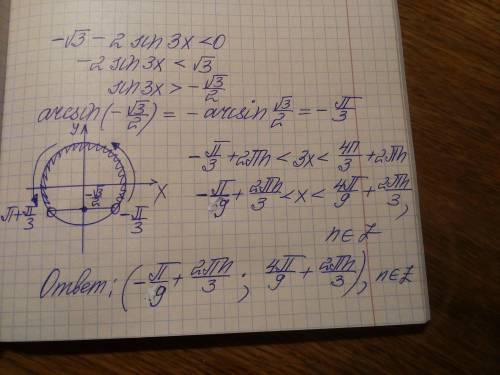 -√3 - 2 sin 3x < 0
-2 sin 3x < √3
sin 3x > -√3/2
arcsin(-√3/2) = -arcsin √3/2 = -π/3
y
x
π+π/3
-π/3
-π/3 + 2πn < 3x < 4π/3 + 2πn
-π/9 + 2πn/3 < x < 4π/9 + 2πn/3,
n∈Z
Ответ: (-π/9 + 2πn/3; 4π/9 + 2πn/3), n∈Z